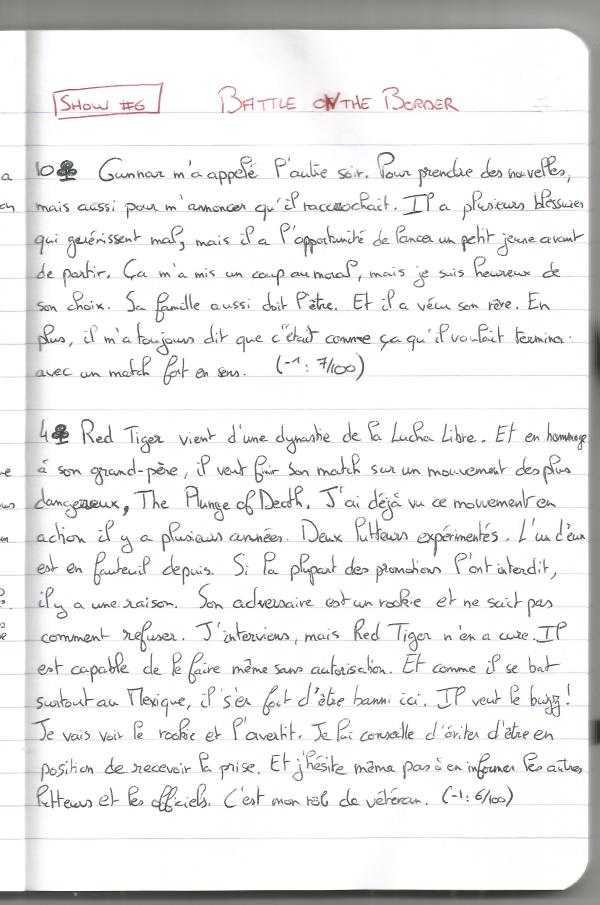 SHOW #6 BATTLE ON THE BORDER
10♣ Gunnar m'a appelé l'autre soir. Pour prendre des nouvelles,
mais aussi pour m'annoncer qu'il raccrochait. Il a plusieurs blessures
qui guérissent mal, mais il a l'opportunité de lancer un petit jeune avant
de partir. Ça m'a mis un coup au moral, mais je suis heureux de
son choix. Sa famille aussi doit l'être. Et il a vécu son rêve. En
plus, il m'a toujours dit que c'était comme ça qu'il voulait terminer :
avec un match fort en sens. (-1 : 7/100)
4♣ Red Tiger vient d'une dynastie de la Lucha Libre. Et en hommage
à son grand-père, il veut finir son match sur un mouvement des plus
dangereux, The Plunge of Death. J'ai déjà vu ce mouvement en
action il y a plusieurs années. Deux lutteurs expérimentés. L'un d'eux
est en fauteuil depuis. Si la plupart des promotions l'ont interdit,
il y a une raison. Son adversaire est un rookie et ne sait pas
comment refuser. J'interviens, mais Red Tiger n'en a cure. Il
est capable de le faire même sans autorisation. Et comme il se bat
surtout au Mexique, il s'en fout d'être banni ici. Il veut le buzz !
Je vais voir le rookie et l'avertit. Je lui conseille d'éviter d'être en
position de recevoir la prise. Et j'hésite même pas à en informer les autres
lutteurs et les officiels. C'est mon rôl de vétéran. (-1 : 6/100)
a
on
e
us
en
s.
s
e